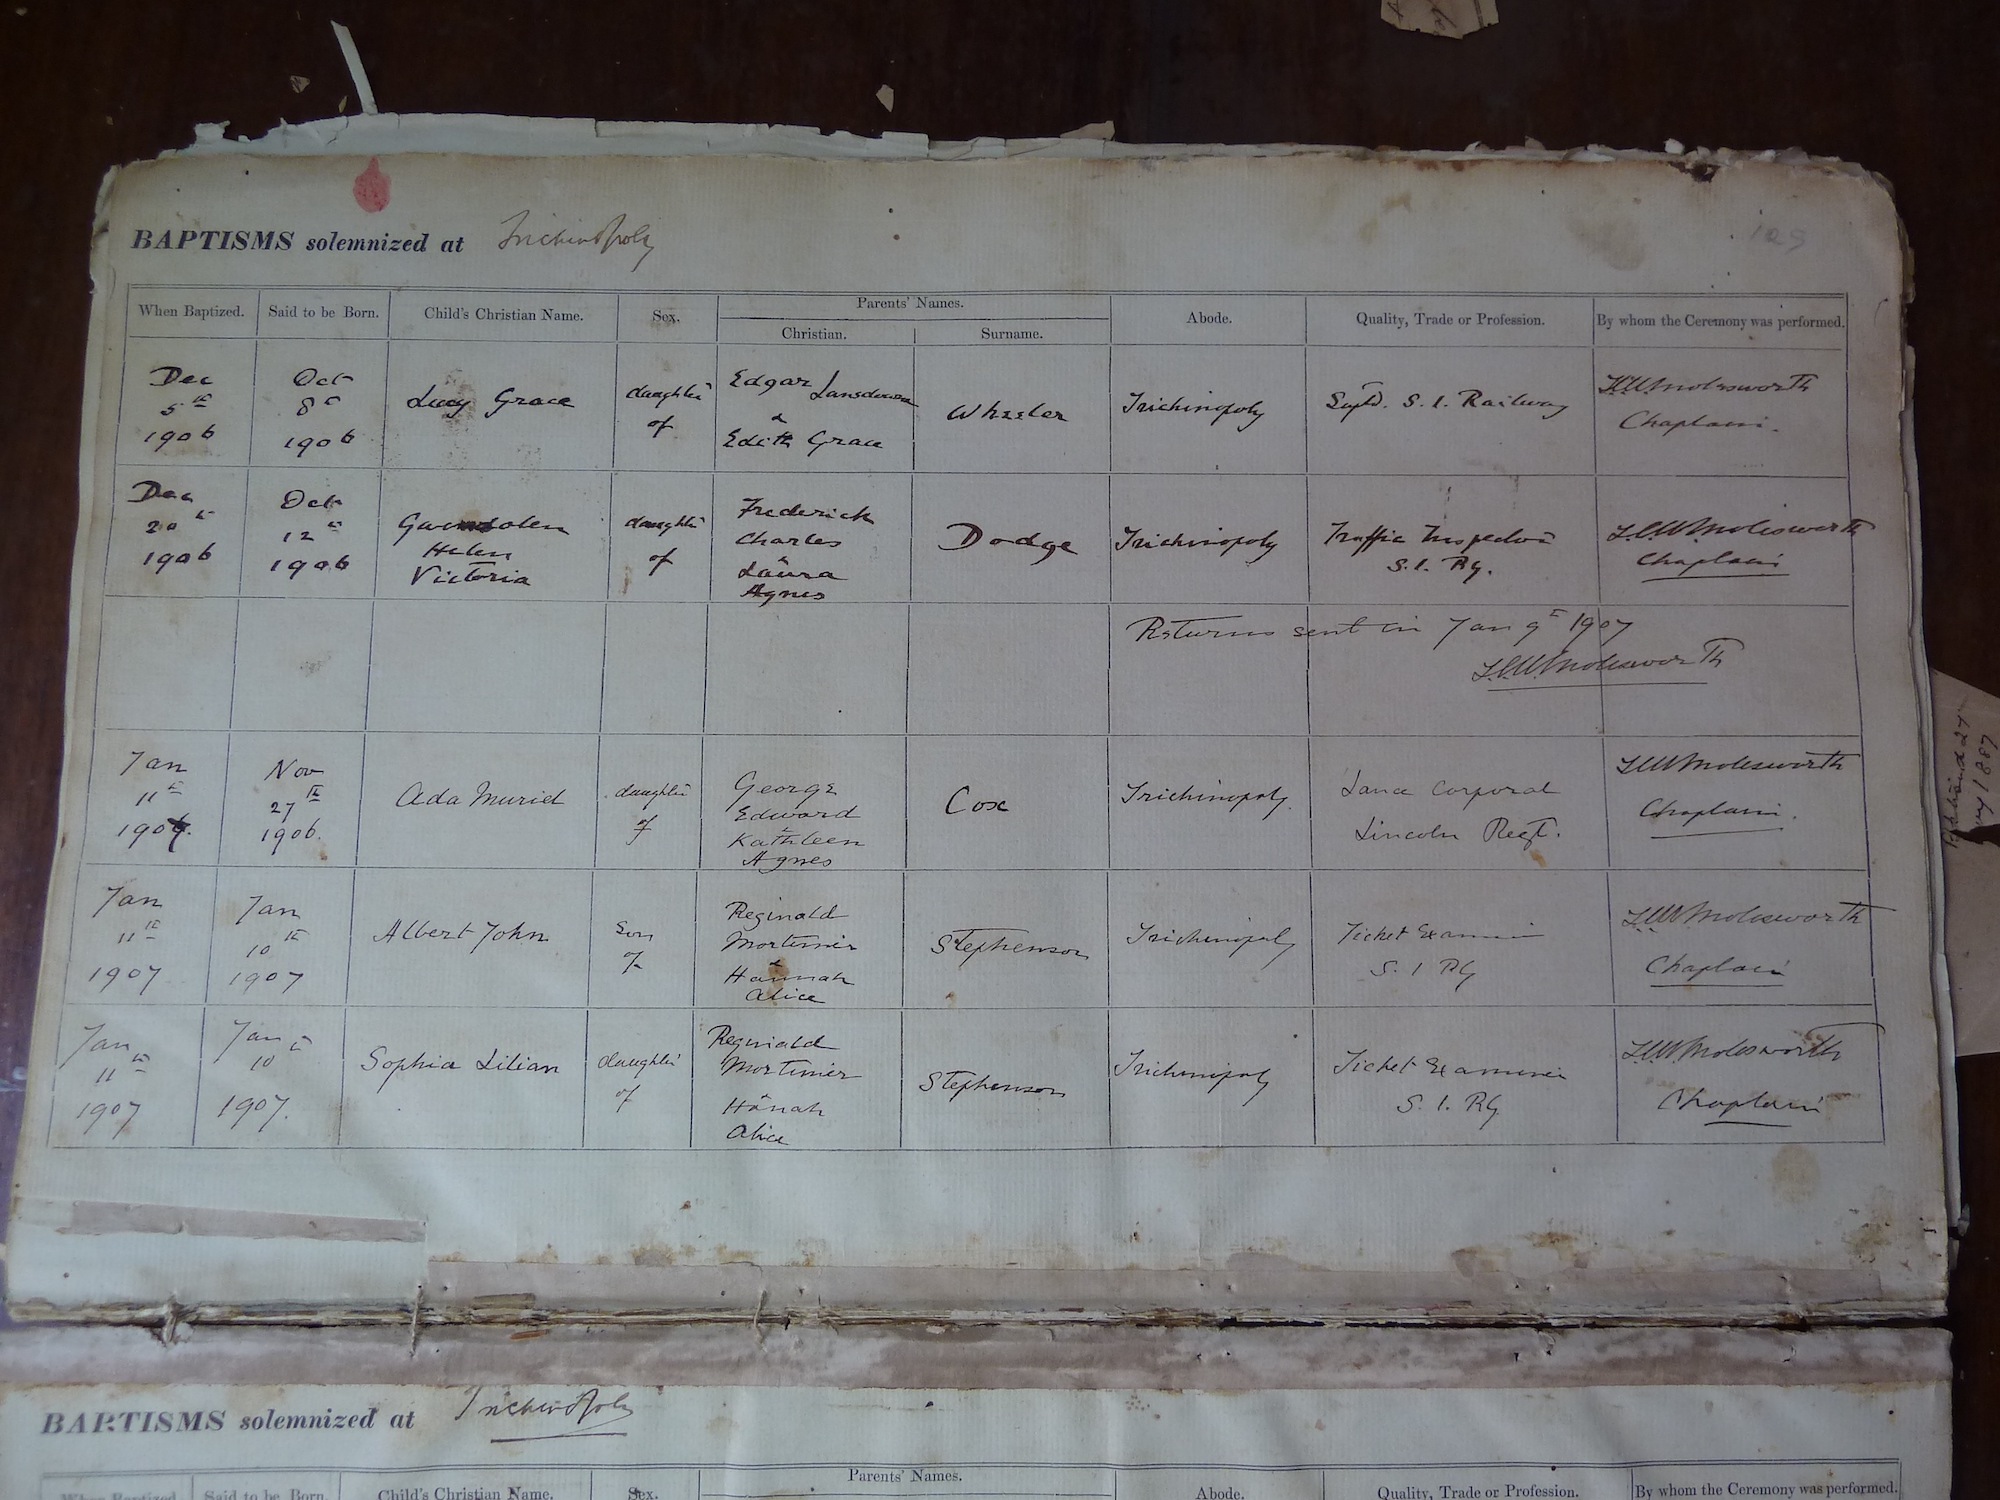 BAPTISMS solemnized at Trichinopoly
129
When Baptized. Said to be Born. Child's Christian Name. Sex. Parents' Names. Abode. Quality, Trade or Profession. By whom the Ceremony was performed.
Christian. Surname.
Dec 5th 1906
Oct 8th 1906
Lucy Grace
daughter of
Edgar Lansdowne
&
Edith Grace
Wheeler
Trichinopoly
Supt. S. I. Railway
Molesworth
Chaplain.
Dec 20th 1906
Oct 12th 1906
Gwendolen
Helen
Victoria
daughter of
Frederick
Charles
&
Laura
Agnes
Dodge
Trichinopoly
Traffic Inspector
S. I. Ry.
Molesworth
Chaplain
Returns sent in Jan 9th 1907
Molesworth
Jan 11th 1907.
Nov 27th 1906.
Ada Muriel
daughter of
George
Edward
&
Kathleen
Agnes
Cox
Trichinopoly.
Lance Corporal
Lincoln Regt.
Molesworth
Chaplain.
Jan 11th 1907
Jan 10th 1907
Albert John
Son of
Reginald
Mortimer
&
Hannah
Alice
Stephenson
Trichinopoly
Ticket Examiner
S. I Ry
Molesworth
Chaplain
Jan 11th 1907
Jan 10th 1907.
Sophia Lilian
daughter of
Reginald
Mortimer
&
Hanah
Alice
Stephenson
Trichinopoly
Ticket Examiner
S. I. Ry
Molesworth
Chaplain
BAPTISMS solemnized at Trichinopoly
When Baptized. Said to be Born. Child's Christian Name. Sex. Parents' Names. Abode. Quality, Trade or Profession. By whom the Ceremony was performed.